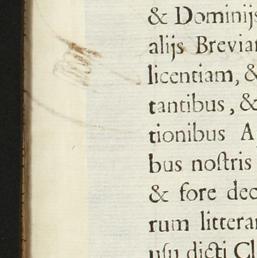 & Dominijs
alijs Brevia
licentiam, &
tantibus, &
tionibus A
bus noſtris
& fore dec
rum littera
uſu dicti Cl